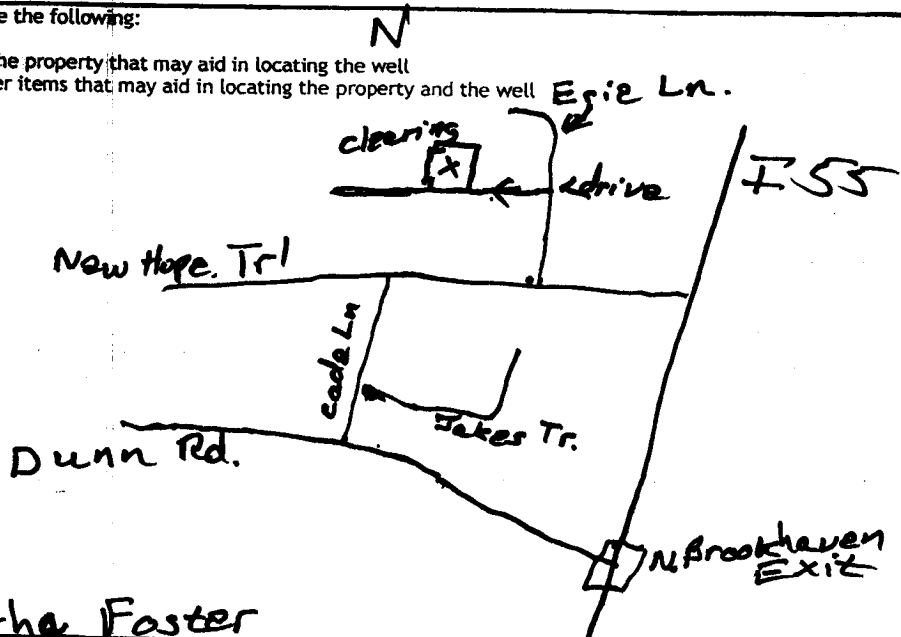 e the following:
N
he property that may aid in locating the well
er items that may aid in locating the property and the well
Esie Ln.
clearing
X
drive
I 55
New Hope. Trl
Cade Ln
Jakes Tr.
Dunn Rd.
N. Brookhaven
Exit
Foster